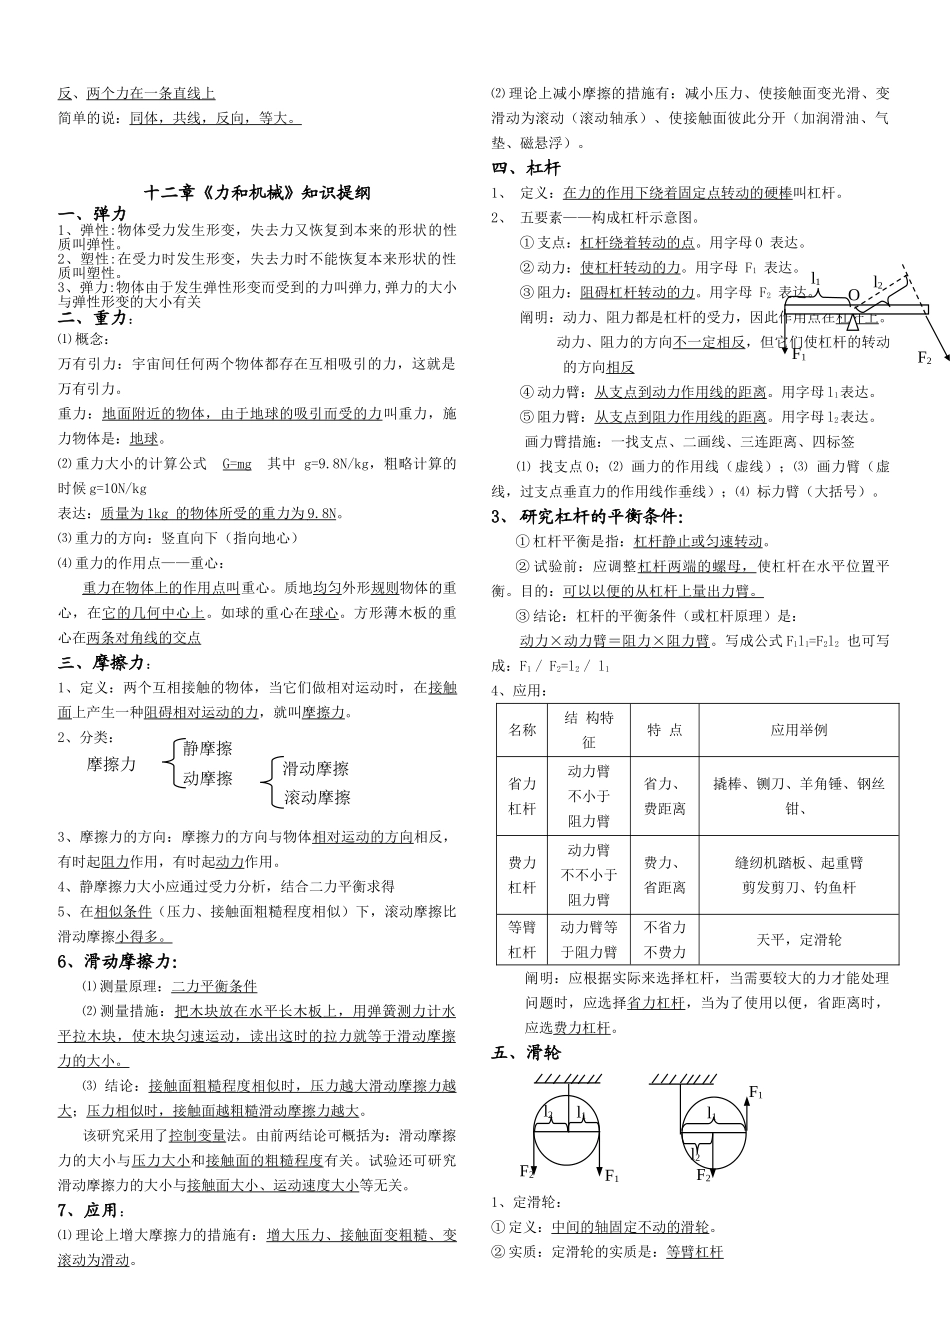 反、两个力在一条直线上
简单的说：同体，共线，反向，等大。
十二章《力和机械》知识提纲
一、弹力
1、弹性:物体受力发生形变，失去力又恢复到本来的形状的性
质叫弹性。
2、塑性:在受力时发生形变，失去力时不能恢复本来形状的性
质叫塑性。
3、弹力:物体由于发生弹性形变而受到的力叫弹力,弹力的大小
与弹性形变的大小有关
二、重力：
⑴ 概念：
万有引力：宇宙间任何两个物体都存在互相吸引的力，这就是
万有引力。
重力：地面附近的物体，由于地球的吸引而受的力叫重力，施
力物体是：地球。
⑵ 重力大小的计算公式 G=mg 其中 g=9.8N/kg，粗略计算的
时候 g=10N/kg
表达：质量为 1kg 的物体所受的重力为 9.8N。
⑶ 重力的方向：竖直向下（指向地心）
⑷ 重力的作用点——重心：
重力在物体上的作用点叫重心。质地均匀外形规则物体的重
心，在它的几何中心上。如球的重心在球心。方形薄木板的重
心在两条对角线的交点
三、摩擦力：
1、定义：两个互相接触的物体，当它们做相对运动时，在接触
面上产生一种阻碍相对运动的力，就叫摩擦力。
2、分类：
摩擦力
静摩擦
动摩擦
滑动摩擦
滚动摩擦
3、摩擦力的方向：摩擦力的方向与物体相对运动的方向相反，
有时起阻力作用，有时起动力作用。
4、静摩擦力大小应通过受力分析，结合二力平衡求得
5、在相似条件（压力、接触面粗糙程度相似）下，滚动摩擦比
滑动摩擦小得多。
6、滑动摩擦力：
⑴ 测量原理：二力平衡条件
⑵ 测量措施：把木块放在水平长木板上，用弹簧测力计水
平拉木块，使木块匀速运动，读出这时的拉力就等于滑动摩擦
力的大小。
⑶ 结论：接触面粗糙程度相似时，压力越大滑动摩擦力越
大；压力相似时，接触面越粗糙滑动摩擦力越大。
该研究采用了控制变量法。由前两结论可概括为：滑动摩擦
力的大小与压力大小和接触面的粗糙程度有关。试验还可研究
滑动摩擦力的大小与接触面大小、运动速度大小等无关。
7、应用：
⑴ 理论上增大摩擦力的措施有：增大压力、接触面变粗糙、变
滚动为滑动。
⑵ 理论上减小摩擦的措施有：减小压力、使接触面变光滑、变
滑动为滚动（滚动轴承）、使接触面彼此分开（加润滑油、气
垫、磁悬浮）。
四、杠杆
1、 定义：在力的作用下绕着固定点转动的硬棒叫杠杆。
2、 五要素——构成杠杆示意图。
① 支点：杠杆绕着转动的点。用字母 O 表达。
② 动力：使杠杆转动的力。用字母 F₁ 表达。
③ 阻力：阻碍杠杆转动的力。用字母 F₂ 表达。
阐明：动力、阻力都是杠杆的受力，因此作用点在杠杆上。
动力、阻力的方向不一定相反，但它们使杠杆的转动
的方向相反
l₁
O
l₂
F₁
F₂
④ 动力臂：从支点到动力作用线的距离。用字母 l₁表达。
⑤ 阻力臂：从支点到阻力作用线的距离。用字母 l₂表达。
画力臂措施：一找支点、二画线、三连距离、四标签
⑴ 找支点 O；⑵ 画力的作用线（虚线）；⑶ 画力臂（虚
线，过支点垂直力的作用线作垂线）；⑷ 标力臂（大括号）。
3、 研究杠杆的平衡条件：
① 杠杆平衡是指：杠杆静止或匀速转动。
② 试验前：应调整杠杆两端的螺母，使杠杆在水平位置平
衡。目的：可以以便的从杠杆上量出力臂。
③ 结论：杠杆的平衡条件（或杠杆原理）是：
动力×动力臂＝阻力×阻力臂。写成公式 F₁l₁=F₂l₂ 也可写
成：F₁ / F₂=l₂ / l₁
4、应用：
名称 结 构特征 特 点 应用举例
省力杠杆 动力臂不小于阻力臂 省力、费距离 撬棒、铡刀、羊角锤、钢丝钳、
费力杠杆 动力臂不不小于阻力臂 费力、省距离 缝纫机踏板、起重臂 剪发剪刀、钓鱼杆
等臂杠杆 动力臂等于阻力臂 不省力不费力 天平，定滑轮
阐明：应根据实际来选择杠杆，当需要较大的力才能处理
问题时，应选择省力杠杆，当为了使用以便，省距离时，
应选费力杠杆。
五、滑轮
l₂
l₁
F₂
F₁
F₁
l₁
l₂
F₂
1、定滑轮：
① 定义：中间的轴固定不动的滑轮。
② 实质：定滑轮的实质是：等臂杠杆